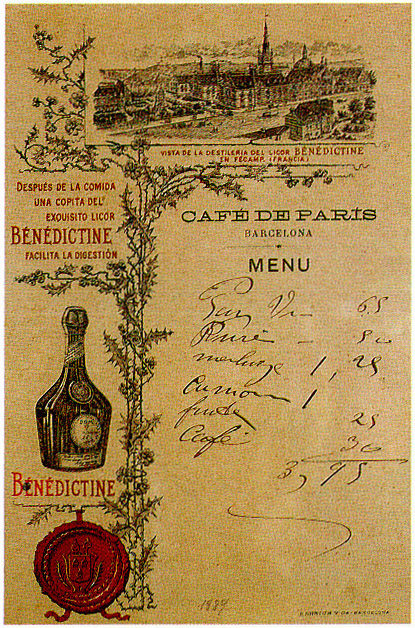 VISTA DE LA DESTILERIA DEL LICOR BÉNÉDICTINE
EN FÉCAMP. (FRANCIA)
DESPUÉS DE LA COMIDA
UNA COPITA DEL
EXQUISITO LICOR
BÉNÉDICTINE
FACILITA LA DIGESTIÓN
CAFÉ DE PARÍS
BARCELONA
MENU
Pan 65
Puré 50
merluza 1,25
1
fruta 25
Café 30
3,95
BÉNÉDICTINE
BARCELONA